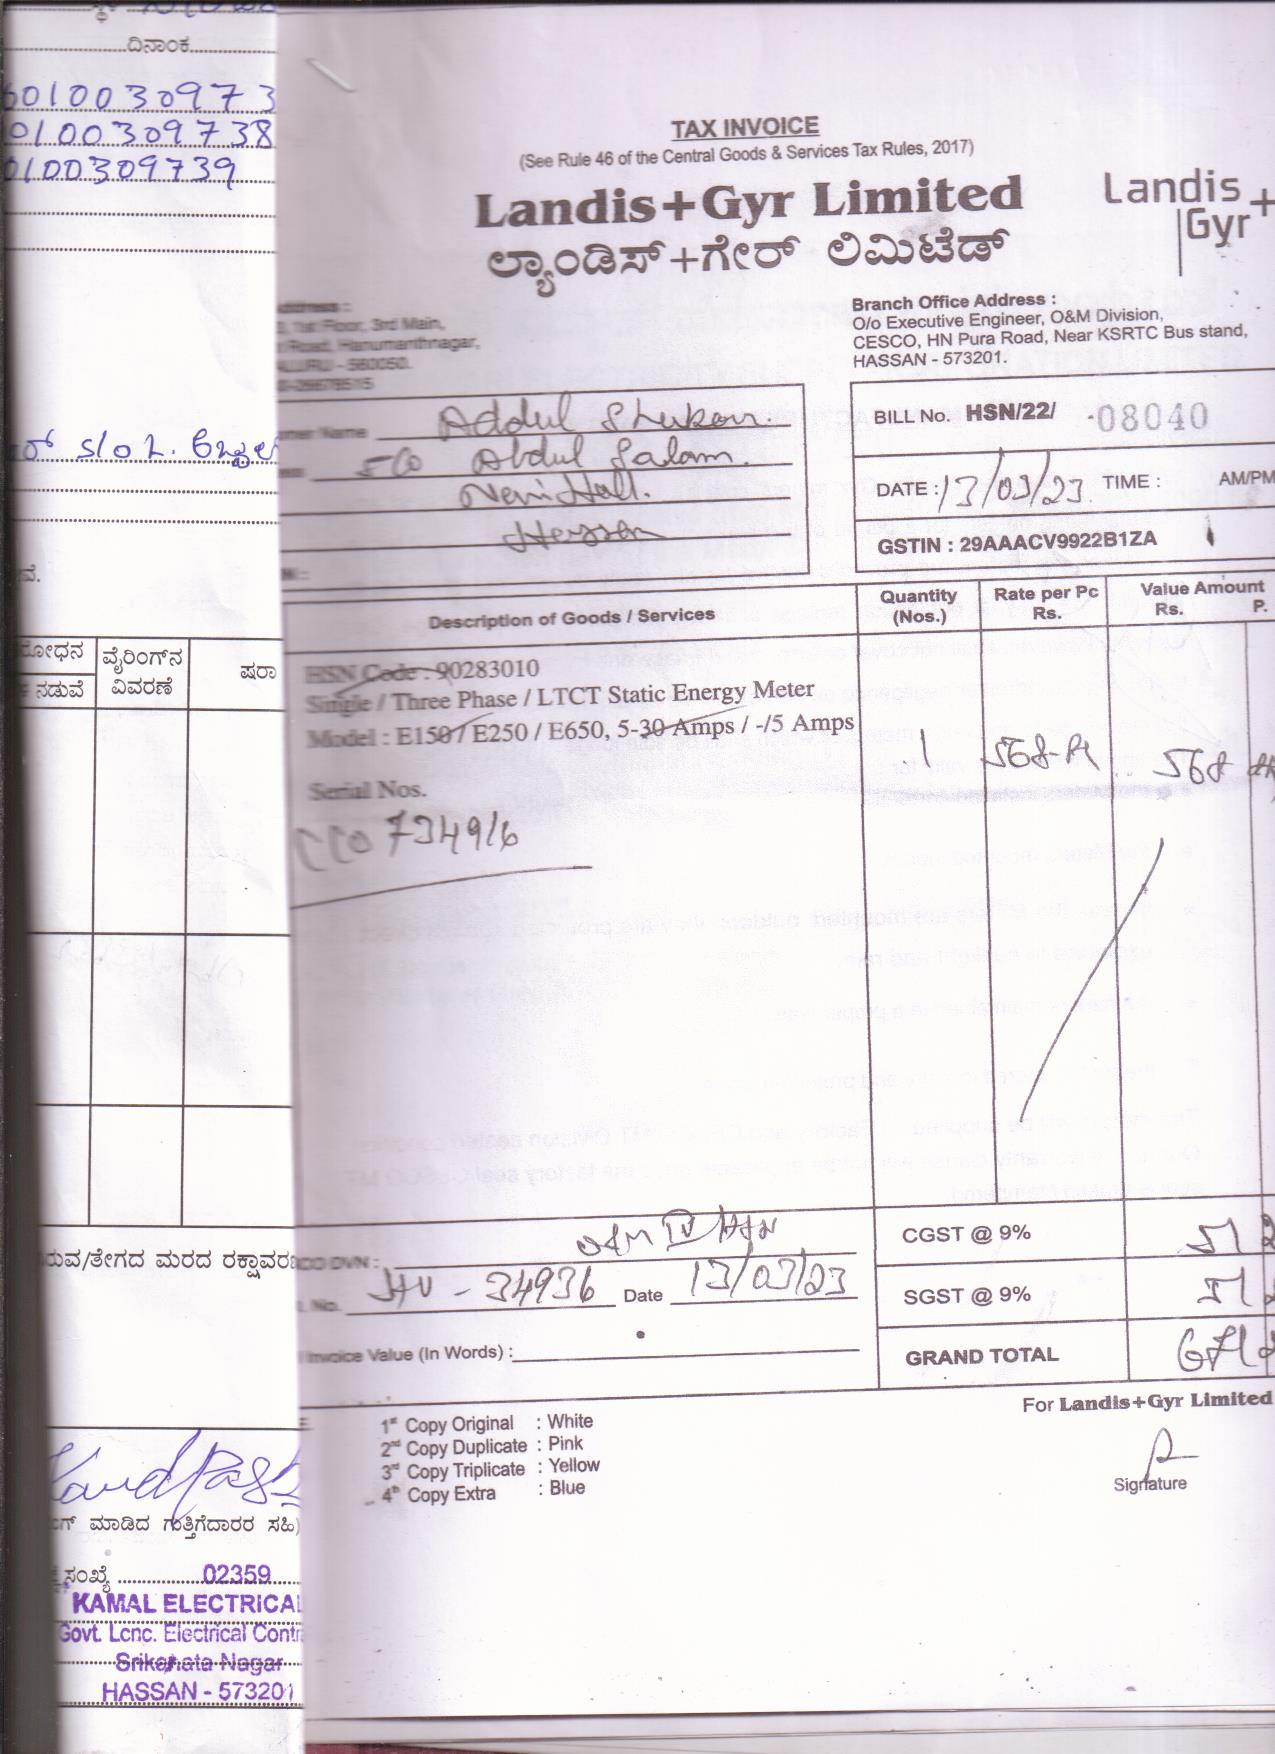 ದಿನಾಂಕ
6010030973
0100309738
0100309739
S/o L.
ವೈರಿಂಗ್‌ನ
ವಿವರಣೆ
ನಡುವೆ
ಷರಾ
ರುವ/ತೇಗದ ಮರದ ರಕ್ಷಾವರ
ಗ್ ಮಾಡಿದ ಗುತ್ತಿಗೆದಾರರ ಸಹಿ
ಸಂಖ್ಯೆ 02359
KAMAL ELECTRICAL
Govt. Lcnc. Electrical Contr
Srikanata Nagar
HASSAN - 573201
TAX INVOICE
(See Rule 46 of the Central Goods & Services Tax Rules, 2017)
Landis+Gyr Limited
ಲ್ಯಾಂಡಿಸ್+ಗೇರ್ ಲಿಮಿಟೆಡ್
Landis
Gyr+
Address :
1st Floor, 3rd Main,
Road, Hanumanthnagar,
560050.
Branch Office Address :
O/o Executive Engineer, O&M Division,
CESCO, HN Pura Road, Near KSRTC Bus stand,
HASSAN - 573201.
Name Addul Shukoor.
S/o Abdul Salam.
Hassan
BILL No. HSN/22/ -08040
DATE : 13/03/23 TIME : AM/PM
GSTIN : 29AAACV9922B1ZA
Description of Goods / Services
Quantity (Nos.)
Rate per Pc Rs.
Value Amount Rs. P.
HSN Code : 90283010
Single / Three Phase / LTCT Static Energy Meter
Model : E150 / E250 / E650, 5-30 Amps / -/5 Amps
1 568- 568
Serial Nos.
734916
O&M IV HSN
No. 34936 Date 13/03/23
Invoice Value (In Words) :
CGST @ 9% 51
SGST @ 9% 51
GRAND TOTAL 671
For Landis+Gyr Limited
1st Copy Original : White
2nd Copy Duplicate : Pink
3rd Copy Triplicate : Yellow
4th Copy Extra : Blue
Signature